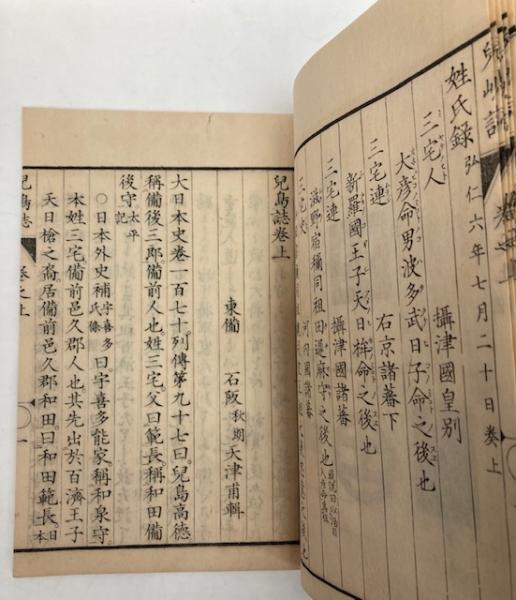 兒島誌
姓氏録 弘仁六年七月二十日奏上
三宅人 攝津國皇別
大彦命男波多武日子命之後也
三宅連 右京諸蕃下
新羅國王子天日桙命之後也
三宅連 攝津國諸蕃
滋野宿禰同祖田道麻守之後也
河内國諸蕃
兒島誌卷上
東備 石阪秋朗天津甫輯
大日本史卷一百七十列傳第九十七曰兒島高德
稱備後三郎備前人也姓三宅父曰範長稱和田備
後守太平記
○日本外史補宇喜多氏條曰宇喜多能家稱和泉守
本姓三宅備前邑久郡人也其先出於百濟王子
天日槍之裔居備前邑久郡和田曰和田範長日本
兒島誌 卷之上 一